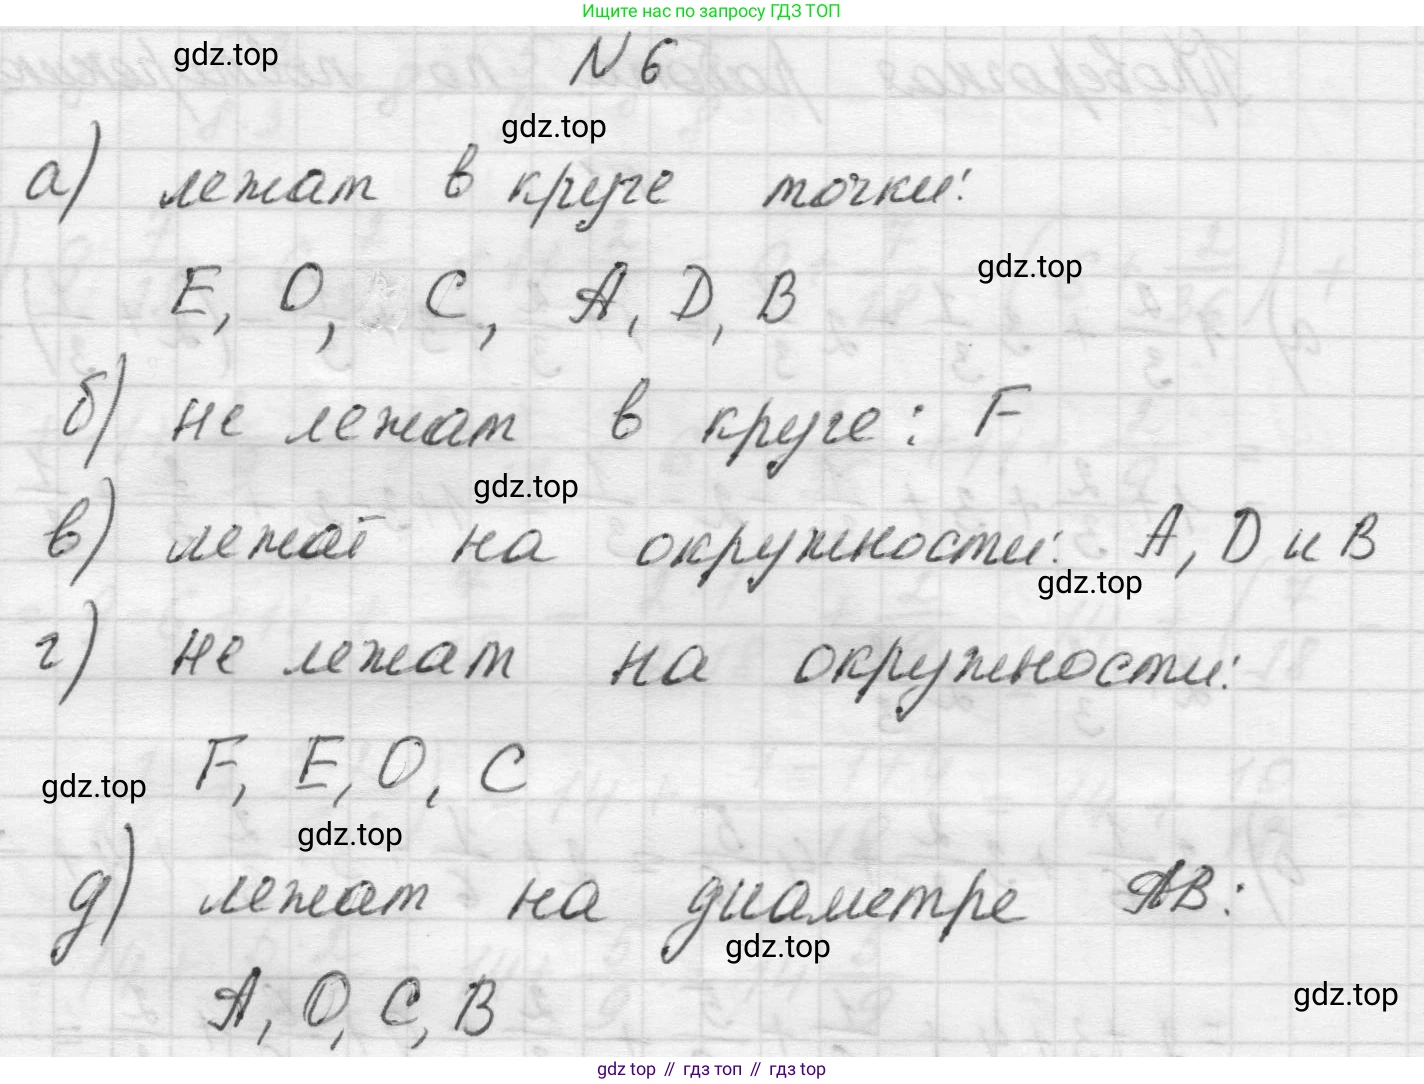 Ищите нас по запросу ГДЗ ТОП
gdz.top
N 6
gdz.top
а) лежат в круге точки:
gdz.top
E, O, C, A, D, B
б) не лежат в круге: F
gdz.top
в) лежат на окружности: A, D и B
gdz.top
г) не лежат на окружности:
F, E, O, C
gdz.top
gdz.top
д) лежат на диаметре AB:
gdz.top
A, O, C, B
gdz.top
gdz top // гдз топ // гдз top